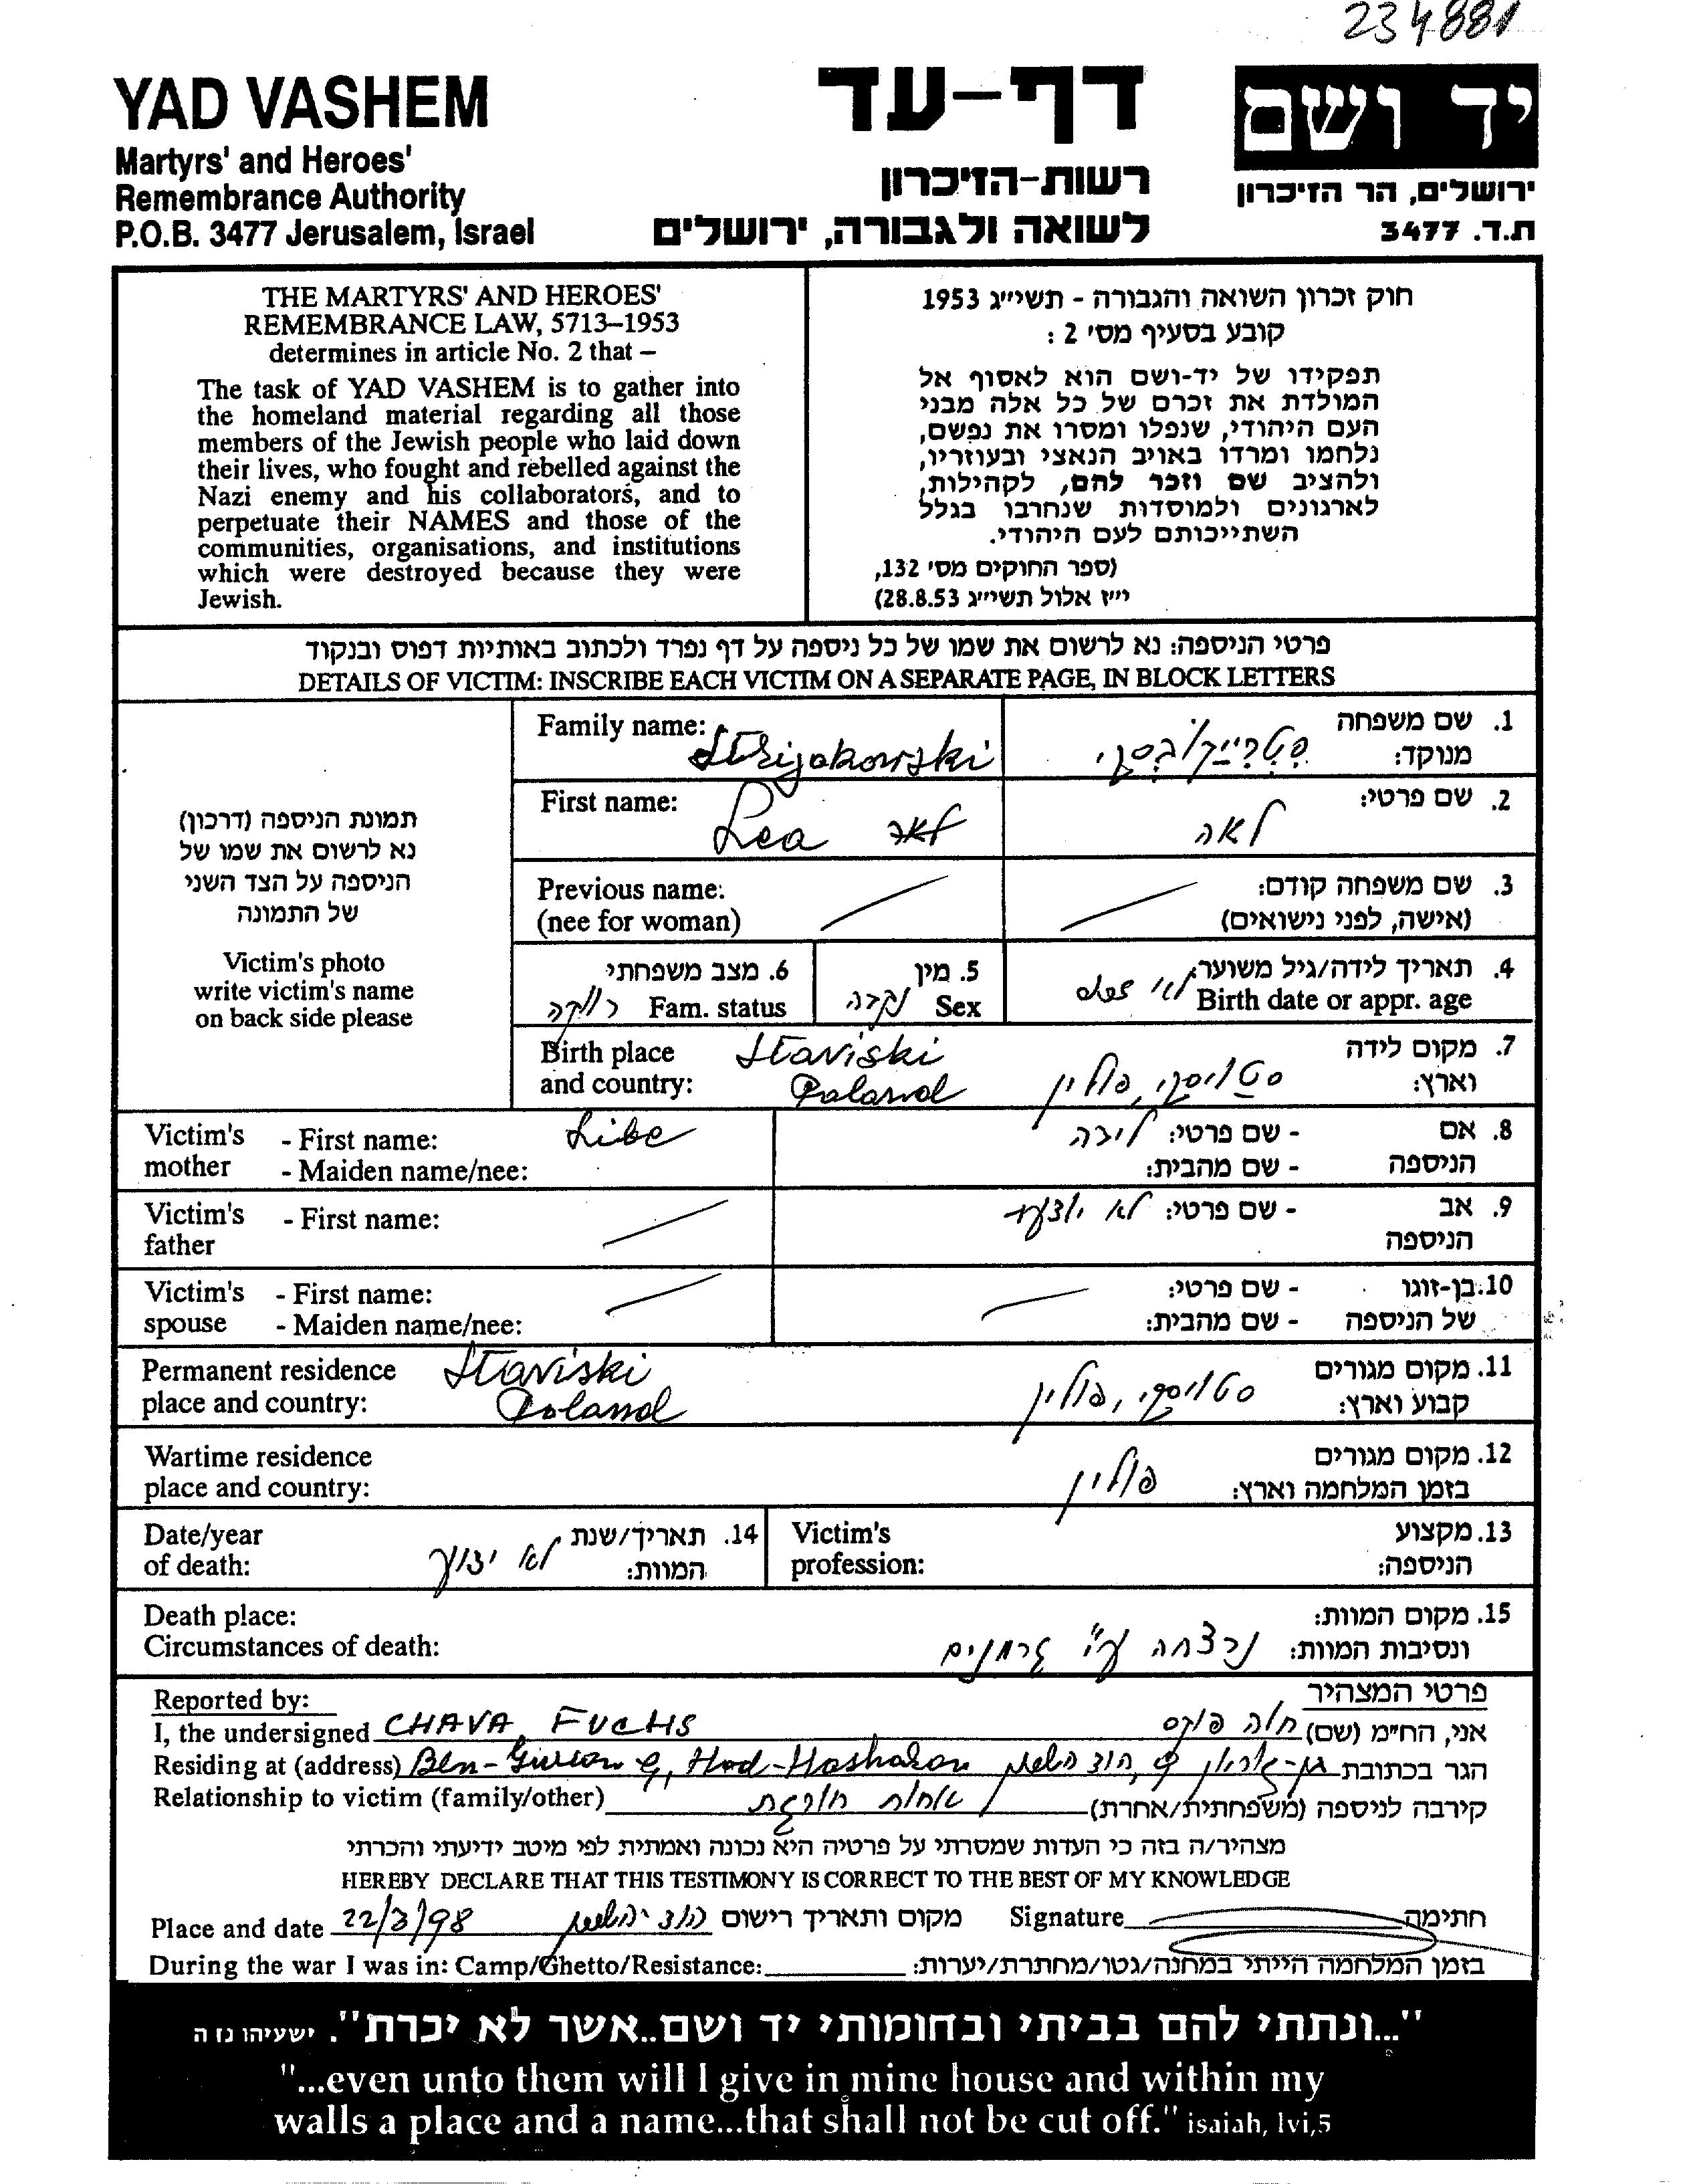 234881
YAD VASHEM
Martyrs' and Heroes'
Remembrance Authority
P.O.B. 3477 Jerusalem, Israel
דף-עד
רשות-הזיכרון
לשואה ולגבורה, ירושלים
יד ושם
ירושלים, הר הזיכרון
ת.ד. 3477
THE MARTYRS' AND HEROES'
REMEMBRANCE LAW, 5713–1953
determines in article No. 2 that –
The task of YAD VASHEM is to gather into
the homeland material regarding all those
members of the Jewish people who laid down
their lives, who fought and rebelled against the
Nazi enemy and his collaborators, and to
perpetuate their NAMES and those of the
communities, organisations, and institutions
which were destroyed because they were
Jewish.
חוק זכרון השואה והגבורה - תשי״ג 1953
קובע בסעיף מס׳ 2 :
תפקידו של יד-ושם הוא לאסוף אל
המולדת את זכרם של כל אלה מבני
העם היהודי, שנפלו ומסרו את נפשם,
נלחמו ומרדו באויב הנאצי ובעוזריו,
ולהציב שם וזכר להם, לקהילות,
לארגונים ולמוסדות שנחרבו בגלל
השתייכותם לעם היהודי.
(ספר החוקים מס׳ 132,
י״ז אלול תשי״ג 28.8.53)
פרטי הניספה: נא לרשום את שמו של כל ניספה על דף נפרד ולכתוב באותיות דפוס ובנקוד
DETAILS OF VICTIM: INSCRIBE EACH VICTIM ON A SEPARATE PAGE, IN BLOCK LETTERS
תמונת הניספה (דרכון)
נא לרשום את שמו של
הניספה על הצד השני
של התמונה
Victim's photo
write victim's name
on back side please
Family name: Strijakowski
1. שם משפחה
מנוקד:
First name: Lea
2. שם פרטי: לאה
Previous name:
(nee for woman)
3. שם משפחה קודם:
(אישה, לפני נישואים)
4. תאריך לידה/גיל משוער
Birth date or appr. age
5. מין נקבה
Sex
6. מצב משפחתי רווקה
Fam. status
Birth place Staviski
and country: Poland
7. מקום לידה
וארץ: סטויסקי, פולין
Victim's - First name: Libe
mother - Maiden name/nee:
8. אם - שם פרטי: ליבה
הניספה - שם מהבית:
Victim's - First name:
father
9. אב - שם פרטי: לא
הניספה
Victim's - First name:
spouse - Maiden name/nee:
10. בן-זוגו - שם פרטי:
של הניספה - שם מהבית:
Permanent residence Staviski
place and country: Poland
11. מקום מגורים
קבוע וארץ: סטויסקי, פולין
Wartime residence
place and country:
12. מקום מגורים
בזמן המלחמה וארץ: פולין
Date/year
of death:
14. תאריך/שנת
המוות: לא ידוע
Victim's
profession:
13. מקצוע
הניספה:
Death place:
Circumstances of death:
15. מקום המוות:
ונסיבות המוות: נרצחה ע״י גרמנים
Reported by:
פרטי המצהיר
I, the undersigned CHAVA FUCHS
אני, הח״מ (שם) חוה פוקס
Residing at (address) Ben-Gurion 9, Hod-Hasharon
הגר בכתובת בן-גוריון 9, הוד השרון
Relationship to victim (family/other)
קירבה לניספה (משפחתית/אחרת) אחות חורגת
מצהיר/ה בזה כי העדות שמסרתי על פרטיה היא נכונה ואמתית לפי מיטב ידיעתי והכרתי
HEREBY DECLARE THAT THIS TESTIMONY IS CORRECT TO THE BEST OF MY KNOWLEDGE
Place and date 22/3/98 הוד השרון מקום ותאריך רישום
Signature חתימה
During the war I was in: Camp/Ghetto/Resistance:
בזמן המלחמה הייתי במחנה/גטו/מחתרת/יערות:
"...ונתתי להם בביתי ובחומותי יד ושם..אשר לא יכרת". ישעיהו נז ה
"...even unto them will I give in mine house and within my
walls a place and a name...that shall not be cut off." isaiah, lvi,5